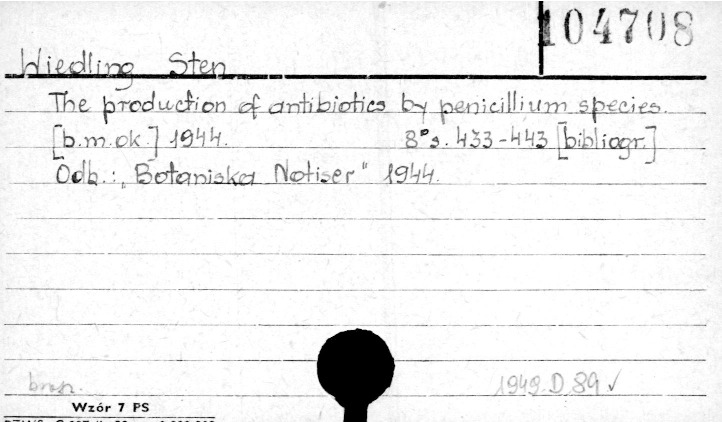 104708
Wiedling Sten
The production of antibiotics by penicillium species.
[b.m.ok.] 1944. 8°s. 433-443 [bibliogr.]
Odb.: „Botaniska Notiser" 1944.
brosz. 1949. D 89 √
Wzór 7 PS